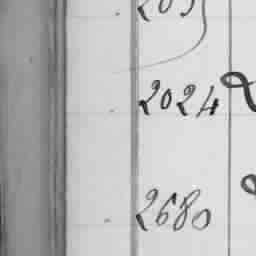 2024
2680